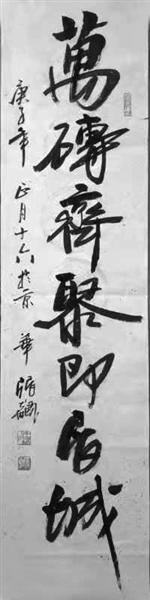 萬磚齊聚即居城
庚子年 正月十八於京華